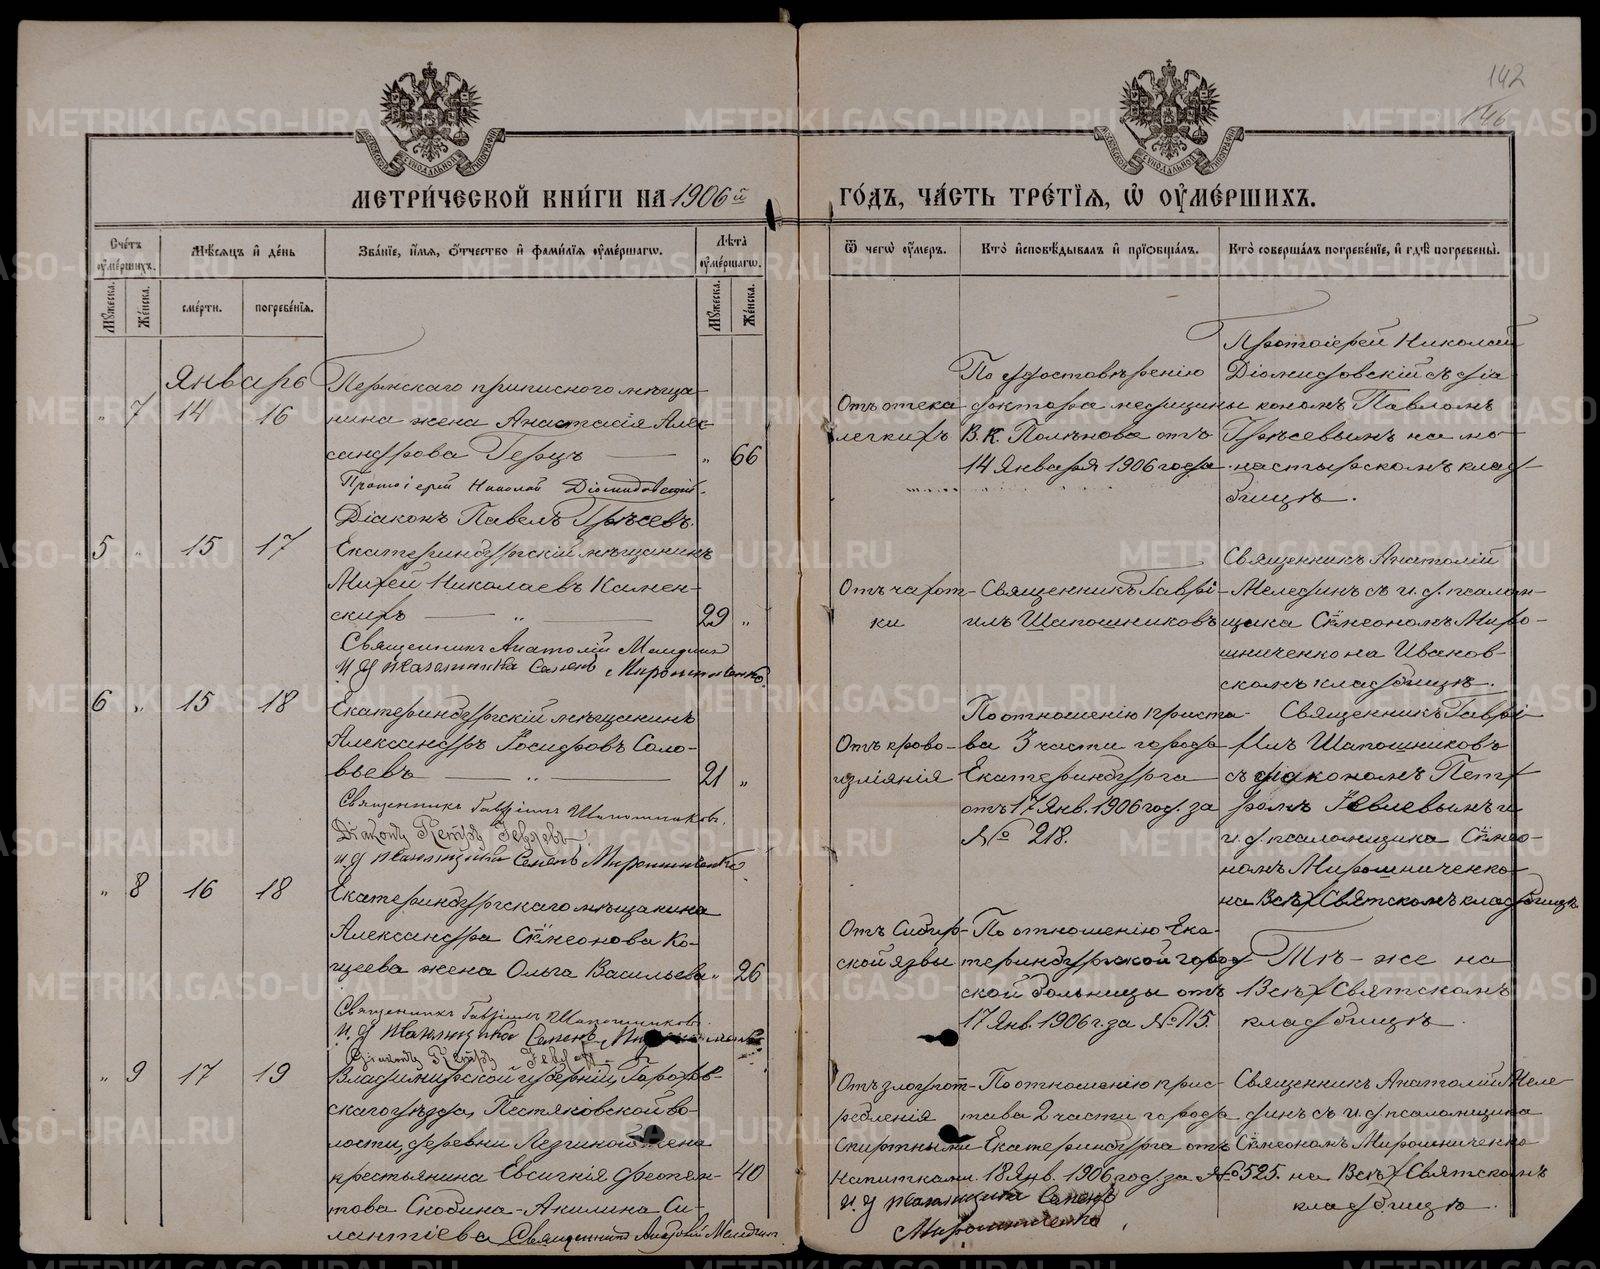 142
146
МЕТРИ́ЧЕСКОЙ КНИ́ГИ НА 1906й
ГО́ДЪ, ЧА́СТЬ ТРЕ́ТІЯ, Ѡ ОУМЕ́РШИХЪ.
Сче́тъ оуме́ршихъ.
Мѣ́сяцъ и де́нь
Зва́ніе, и́мя, о́тчество и фами́лія оуме́ршагѡ.
Лѣта̀ оуме́ршагѡ.
Мꙋ́жеска.
Же́нска.
сме́рти.
погребе́нія.
Мꙋ́жеска.
Же́нска.
Ѿ чегѡ̀ оу́меръ.
Кто̀ исповѣ́дывалъ и прїѻбща́лъ.
Кто̀ соверша́лъ погребе́ніе, и гдѣ̀ погребены̀.
Январь
" 7 14 16
Пермскаго приписного мѣща-
нина жена Анастасія Алек-
сандрова Герцъ " 66
Протоіерей Николай Діомидовскій.
Діаконъ Павелъ Грѣсевъ.
Отъ отека
легкихъ
По удостовѣренію
доктора медицины
В.К. Полѣнова отъ
14 Января 1906 года
Протоіерей Николай
Діомидовскій съ діа-
кономъ Павломъ
Грѣсевымъ на мо-
настырскомъ клад-
бищѣ.
5 " 15 17
Екатеринбургскій мѣщанинъ
Михей Николаевъ Камен-
скихъ " 29 "
Священникъ Анатолій Меледин
И д псаломщика Семенъ Мирошниченко.
Отъ чахот-
ки
Священникъ Гаврі-
илъ Шапошниковъ
Священникъ Анатолій
Мелединъ съ и. д. псалом-
щика Сѵмеономъ Миро-
шниченко на Иванов-
скомъ кладбищѣ.
6 " 15 18
Екатеринбургскій мѣщанинъ
Александръ Іосифовъ Соло-
вьевъ " 21 "
Священникъ Гавріилъ Шапошниковъ.
Діаконъ Петръ Іевлевъ.
И д псаломщика Семенъ Мирошниченко
Отъ крово-
изліянія
По отношенію приста-
ва 3 части города
Екатеринбурга
отъ 17 Янв. 1906 год. за
№ 218.
Священникъ Гаврі-
илъ Шапошниковъ
съ діакономъ Пет-
ромъ Іевлевымъ и
и. д. псаломщика Сѵмео-
номъ Мирошниченко
на Всѣхсвятскомъ кладбищѣ.
" 8 16 18
Екатеринбургскаго мѣщанина
Александра Сѵмеонова Ко-
щеева жена Ольга Васильева " 26
Священникъ Гавріилъ Шапошниковъ.
И. д псаломщика Семенъ
Діаконъ Петръ Іевлевъ
Отъ Сибир-
ской язвы
По отношенію Ека-
теринбургской город-
ской больницы отъ
17 Янв. 1906 г. за № 115.
Тѣ-же на
Всѣхсвятскомъ
кладбищѣ.
" 9 17 19
Владимірской губерніи, Горохов-
скаго уѣзда, Пестяковской во-
лости, деревни Лезгиной жена
крестьянина Евсигнія Феокти- 40
това Скобина-Акилина Си-
лантіева Священникъ Анатолій Меледин
Отъ злоупот-
ребленія
спиртными
напитками.
По отношенію прис-
тава 2 части города
Екатеринбурга отъ
18 Янв. 1906 год. за № 525.
Священникъ Анатолій Меле-
динъ съ и. д. псаломщика
Сѵмеономъ Мирошниченко
на Всѣхсвятскомъ
кладбищѣ.
И. д псаломщика Семенъ
Мирошниченко